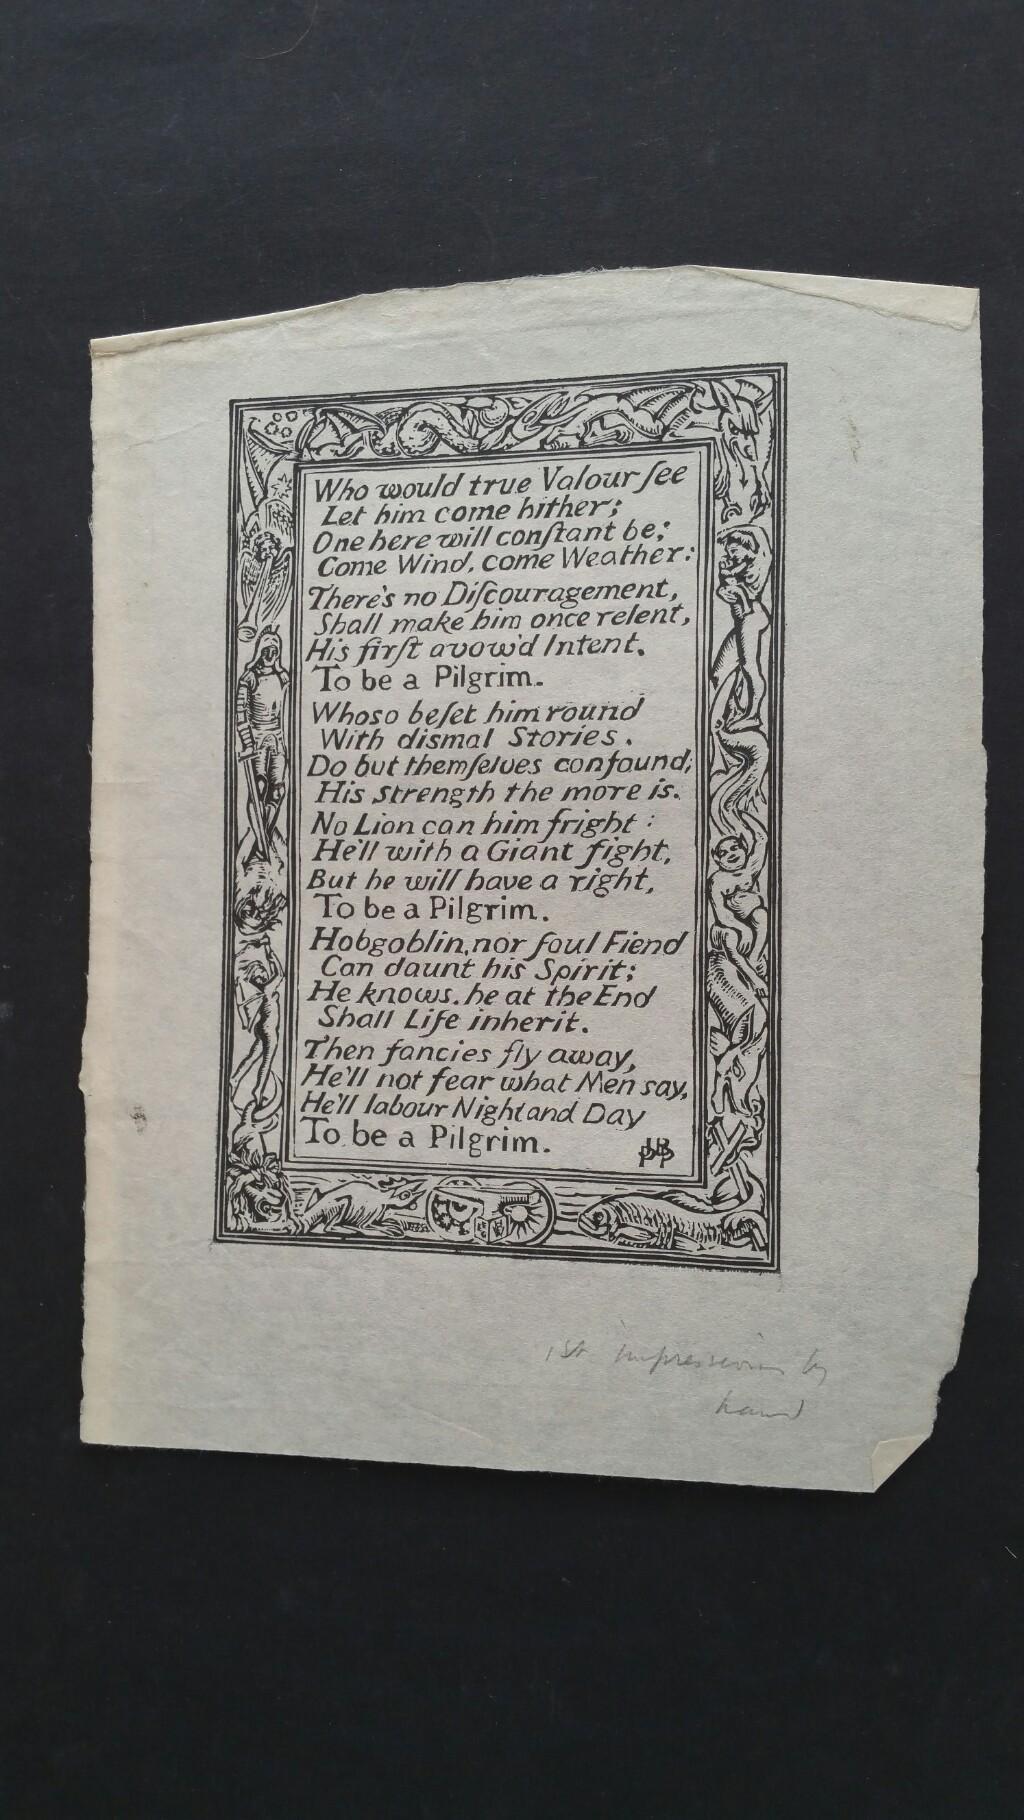 Who would true Valour ſee
Let him come hither;
One here will conſtant be;
Come Wind, come Weather:
There's no Diſcouragement,
Shall make him once relent,
His firſt avow'd Intent.
To be a Pilgrim.
Whoso beſet him round
With dismal Stories.
Do but themſelves confound;
His strength the more is.
No Lion can him fright:
He'll with a Giant fight,
But he will have a right,
To be a Pilgrim.
Hobgoblin, nor foul Fiend
Can daunt his Spirit;
He knows. he at the End
Shall Life inherit.
Then fancies fly away,
He'll not fear what Men say,
He'll labour Night and Day
To be a Pilgrim.
1st impression by
hand